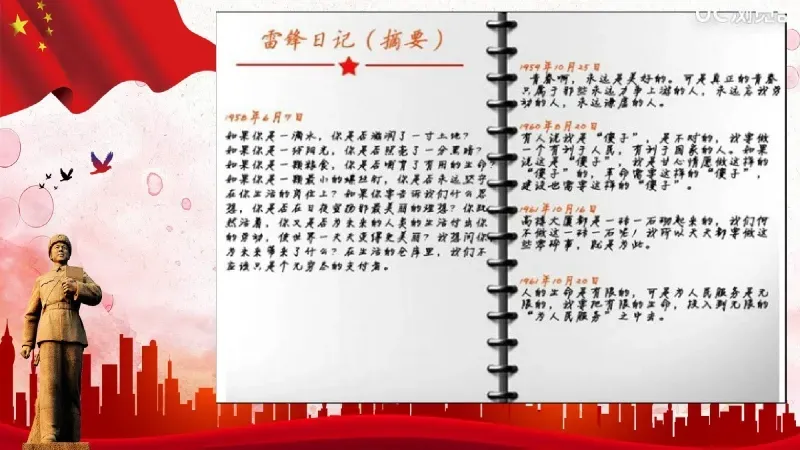 雷锋日记（摘要）
1958年6月7日
如果你是一滴水，你是否滋润了一寸土地？
如果你是一线阳光，你是否照亮了一分黑暗？
如果你是一颗粮食，你是否哺育了有用的生命
如果你是一颗最小的螺丝钉，你是否永远坚守
在你生活的岗位上？如果你要告诉我们什么思
想，你是否在日夜宣扬那最美丽的理想？你既
然活着，你又是否为未来的人类的生活付出你
的劳动，使世界一天天变得更美丽？我想问你
为未来带来了什么？在生活的仓库里，我们不
应该只是个无穷尽的支付者。
1959年10月25日
青春啊，永远是美好的。可是真正的青春
只属于那些永远力争上游的人，永远忘我劳
动的人，永远谦虚的人。
1960年8月20日
有人说我是“傻子”，是不对的，我要做
一个有利于人民，有利于国家的人。如果
说这是“傻子”，我是甘心情愿做这样的
“傻子”的，革命需要这样的“傻子”，
建设也需要这样的“傻子”。
1961年10月16日
高楼大厦都是一砖一石砌起来的，我们何
不做这一砖一石呢！我所以天天都要做这
些零碎事，就是为此。
1961年10月20日
人的生命是有限的，可是为人民服务是无
限的，我要把有限的生命，投入到无限的
“为人民服务”之中去。